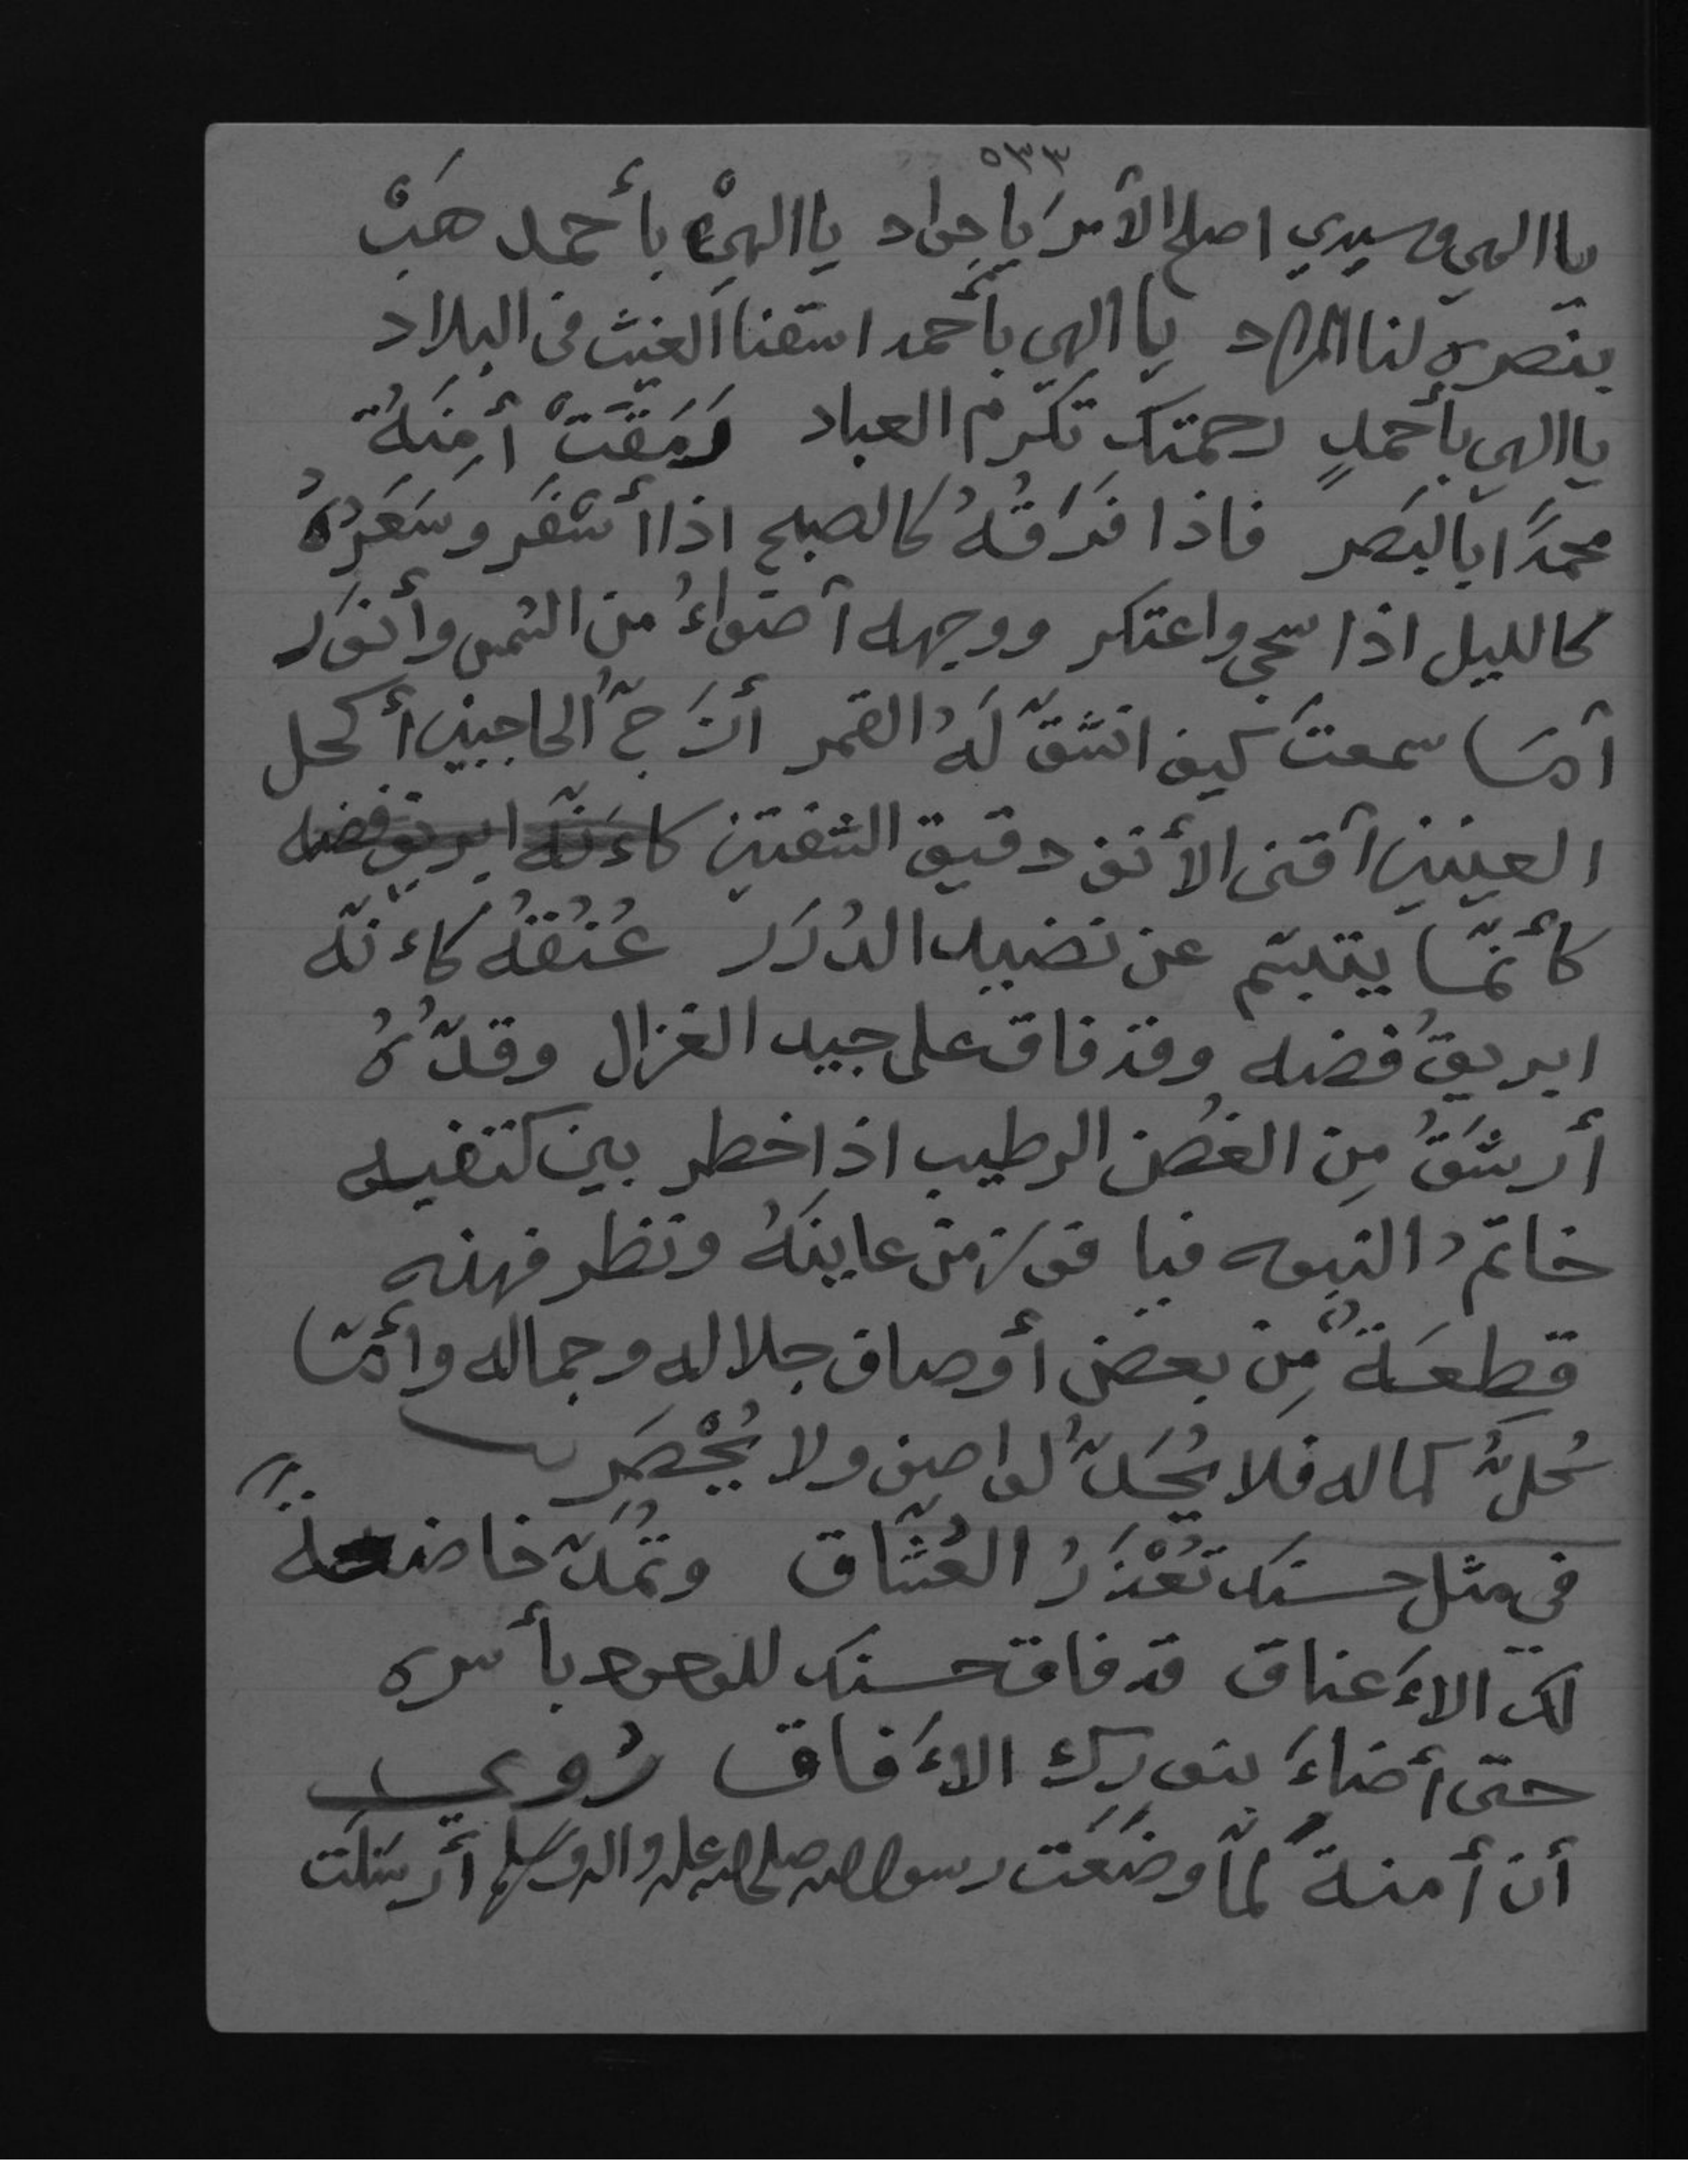 ٥٣٣
يا الهي وسيدي اصلح الأمرَ يا جواد يا الهيْ بأحمد هَبْ
بنصره لنا المراد يا الهي بأحمد اسقنا الغيث فى البلاد
يا الهي بأحمدٍ رحمتك تكرم العباد رَمَقَتْ أمِنَةُ
محمدًا بالبَصر فاذا فَرَقُهُ كالصبح اذا أسْفَر وشَعَرُهُ
كالليل اذا سجى واعتكر ووجهه أضواءُ من الشمس وأنوَر
أمَا سمعتَ كيف انشقّ لَهُ القمر أزَجُّ الحاجبين أكحل
العينين أقنى الأنف دقيق الشفتين كاءَنّه ابريق فضه
كأنّمَا يتبسّم عن نضيد الدُرَر عُنُقُهُ كاءنّه
ابريقُ فضه وقد فاق على جيد الغزال وقدُّهُ
أرشَقُ مِن الغُصن الرطيب اذا خطر بين كتفيه
خاتمُ النبوه فيا فوز من عاينَهُ ونظر فهذه
قطِعَةٌ مِّن بعض أوصاف جلاله وجماله وأمّا
كُلُّ كماله فلا يُحَدُّ لواصف ولا يُحْصَر
في مثل حسنك تُعْذَرُ العُشّاق وتُمَدُّ خاضعةً
لك الاءَعناق قد فاق حسنك للوجود بأسره
حتى أضاءَ بنورك الاءَفاق رُوي
أن أمنةَ لمّا وضَعَت رسول الله صلى الله عليه واله وسلم أرسَلَت